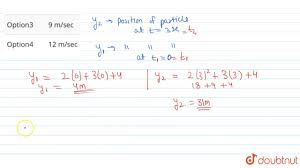 Option3 9 m/sec
Option4 12 m/sec
y₂ → position of particle
at t = 3sec = t₂
y₁ → " " "
at t₁ = 0 = t₀
y₁ = 2(0) + 3(0) + 4
y₁ = 4m
y₂ = 2(3)² + 3(3) + 4
18 + 9 + 4
y₂ = 31m
doubtnut